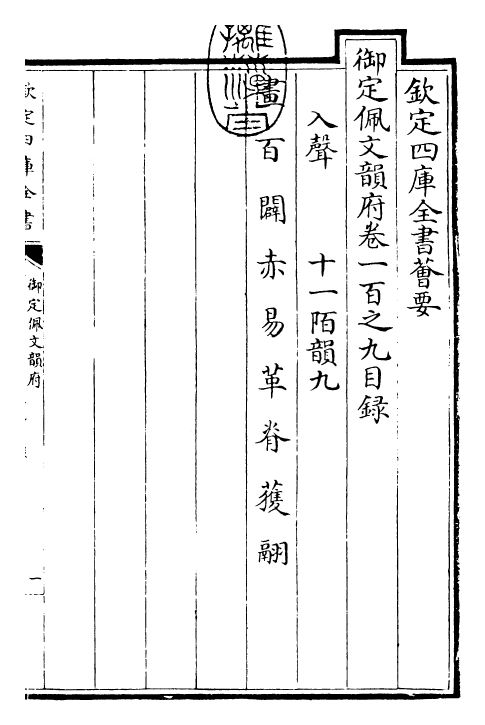 欽定四庫全書薈要
御定佩文韻府卷一百之九目録
入聲 十一陌韻九
畫 百 闢 赤 易 革 脊 獲 翮
欽定四庫全書
御定佩文韻府
一